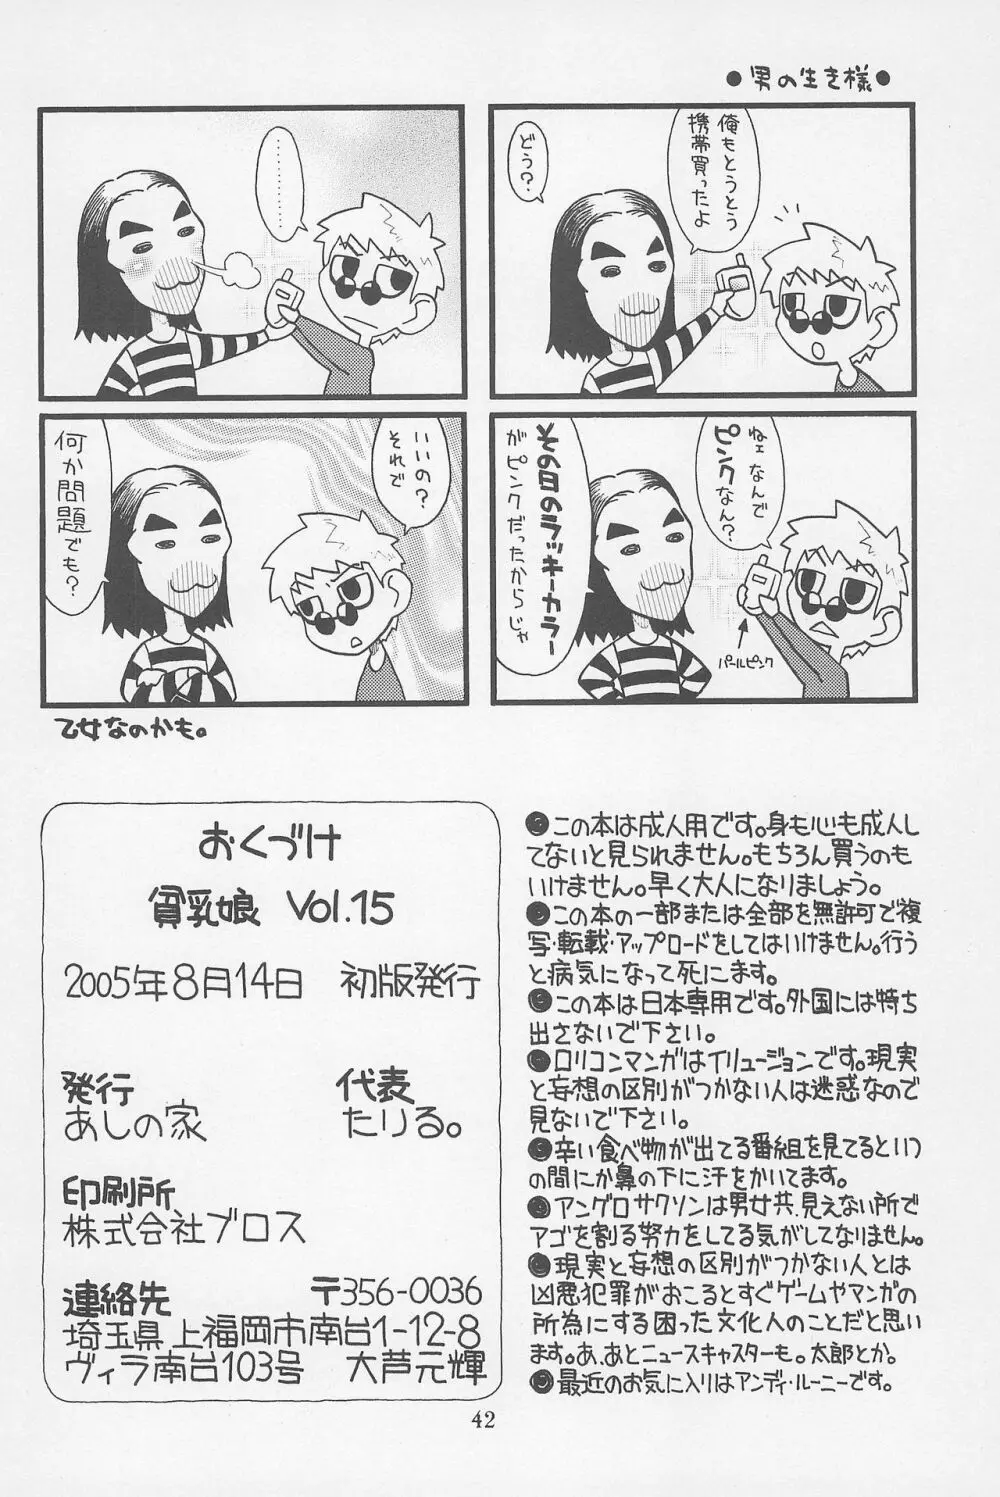 ●男の生き様●
俺もとうとう
携帯買ったよ
どう？
…………
ねェなんで
ピンクなん？
パールピンク
その日のラッキーカラー
がピンクだったからじゃ
いいの？
それで
何か問題でも？
乙女なのかも。
おくづけ
貧乳娘 Vol.15
2005年8月14日 初版発行
発行 代表
あしの家 たりる。
印刷所
株式会社ブロス
連絡先 〒356-0036
埼玉県上福岡市南台1-12-8
ヴィラ南台103号 大芦元輝
●この本は成人用です。身も心も成人し
てないと見られません。もちろん買うのも
いけません。早く大人になりましょう。
●この本の一部または全部を無許可で複
写・転載・アップロードをしてはいけません。行う
と病気になって死にます。
●この本は日本専用です。外国には持ち
出さないで下さい。
●ロリコンマンガはイリュージョンです。現実
と妄想の区別がつかない人は迷惑なので
見ないで下さい。
●辛い食べ物が出てる番組を見てるといつ
の間にか鼻の下に汗をかいてます。
●アングロサクソンは男女共、見えない所で
アゴを割る努力をしてる気がしてなりません。
●現実と妄想の区別がつかない人とは
凶悪犯罪がおこるとすぐゲームやマンガの
所為にする困った文化人のことだと思い
ます。あ、あとニュースキャスターも。太郎とか。
●最近のお気に入りはアンディ・ルーニーです。
42